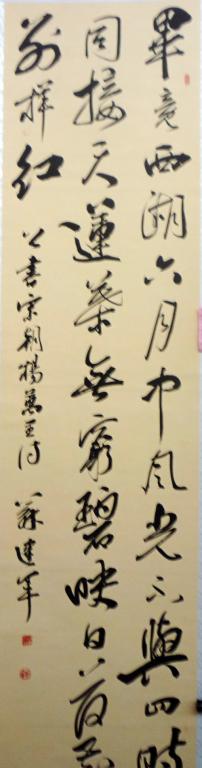 畢竟西湖六月中風光不與四時
同接天蓮葉無窮碧映日荷花
別樣紅
書宋朝楊萬里詩 蘇建軍